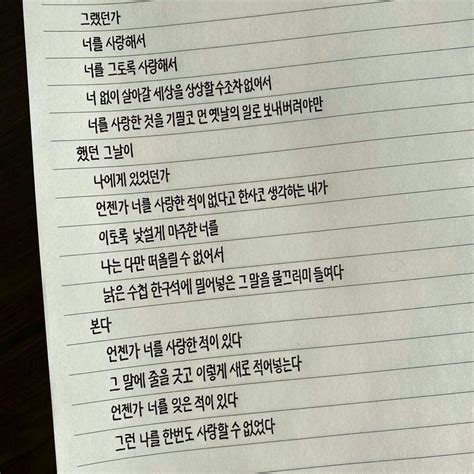 그랬던가
너를 사랑해서
너를 그토록 사랑해서
너 없이 살아갈 세상을 상상할 수조차 없어서
너를 사랑한 것을 기필코 먼 옛날의 일로 보내버려야만
했던 그날이
나에게 있었던가
언젠가 너를 사랑한 적이 없다고 한사코 생각하는 내가
이토록 낯설게 마주한 너를
나는 다만 떠올릴 수 없어서
낡은 수첩 한구석에 밀어넣은 그 말을 물끄러미 들여다
본다
언젠가 너를 사랑한 적이 있다
그 말에 줄을 긋고 이렇게 새로 적어넣는다
언젠가 너를 잊은 적이 있다
그런 나를 한번도 사랑할 수 없었다